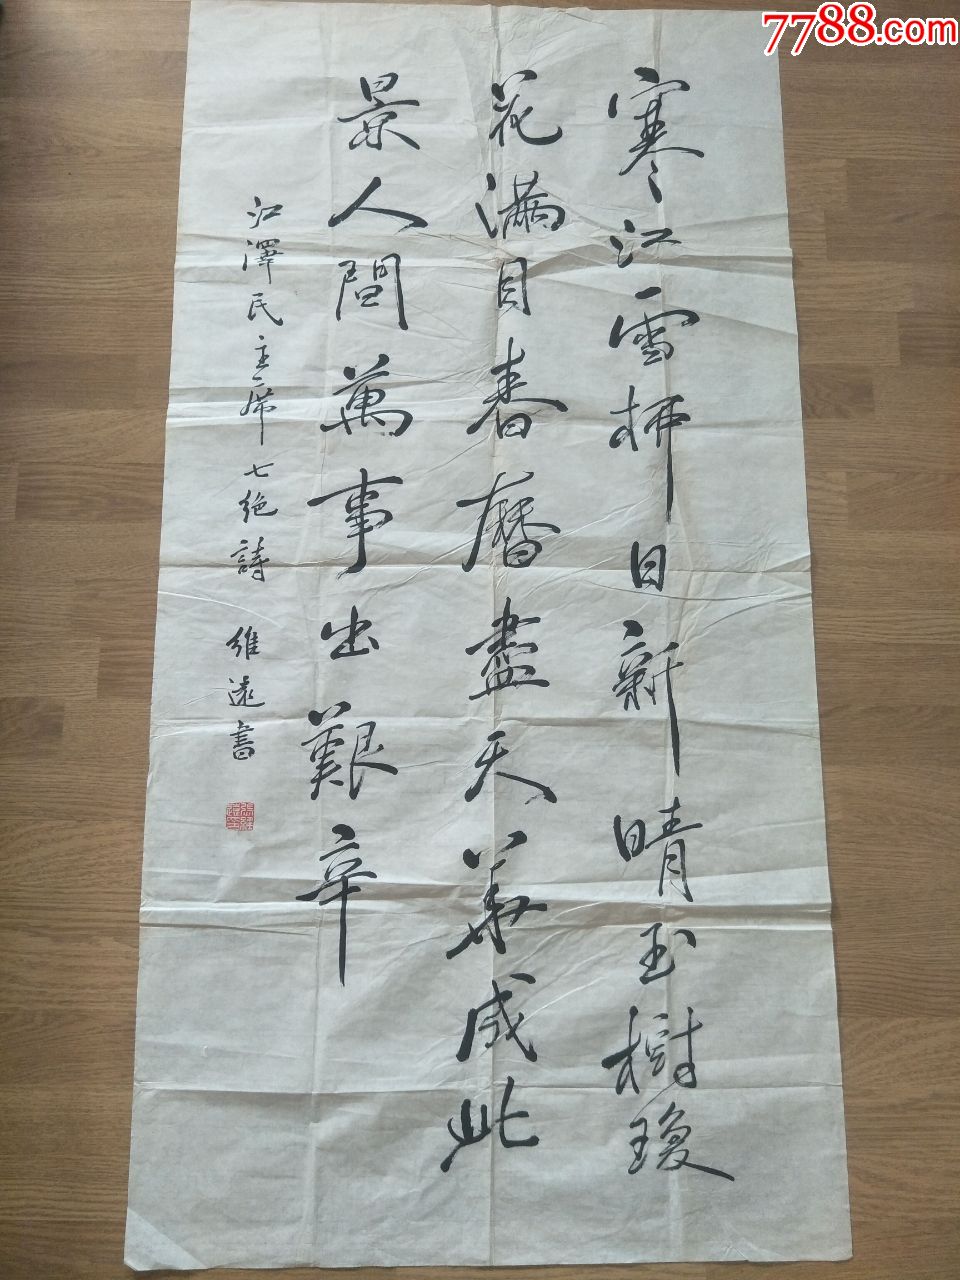 7788.com
寒江雪柳日新晴玉樹瓊
花滿目春曆盡天華成此
景人間萬事出艱辛
江澤民主席七絶詩 維遠書